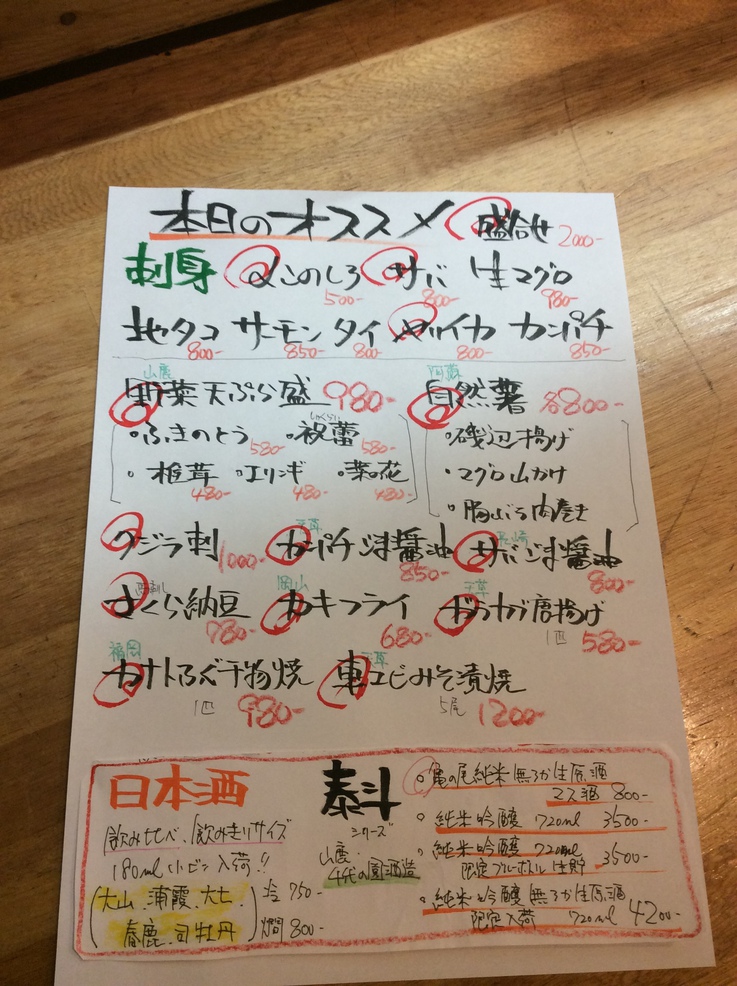 本日のオススメ 盛合せ 2000-
刺身 このしろ 500- サバ 800- 生マグロ 980-
地タコ 800- サーモン 850- タイ 800- ヤリイカ 800- カンパチ 850-
山鹿
野菜天ぷら盛 980-
・ふきのとう 580- ・祝蕾 580-
・椎茸 480- ・エリンギ 480- ・菜の花 480-
阿蘇
自然薯 各800-
・磯辺揚げ
・マグロ山かけ
・豚バラ肉巻き
クジラ刺 1000- 天草 カンパチごま醤油 850- 長崎 サバごま醤油 800-
さくら納豆 780- 岡山 カキフライ 680- 天草 ガラカブ唐揚げ 1匹 580-
福岡 カナトふぐ干物焼 1匹 980- 天草 車エビみそ漬焼 5尾 1200-
日本酒
飲み比べ、飲みきりサイズ
180ml 小ビン入荷!!
大山、浦霞、大七、
春鹿、司牡丹
冷 750-
燗 800-
泰斗
シリーズ
山鹿
千代の園酒造
・亀の尾純米無ろか生原酒
マス酒 800-
・純米吟醸 720ml 3500-
・純米吟醸 720ml
限定ブルーボトル 生貯 3500-
・純米吟醸 無ろか生原酒
限定入荷 720ml 4200-